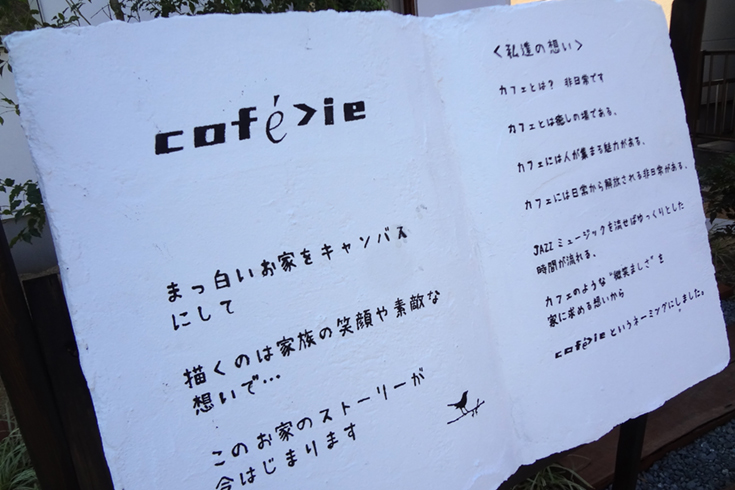 café>ie
まっ白いお家をキャンバス
にして
描くのは家族の笑顔や素敵な
想いで…
このお家のストーリーが
今はじまります
＜私達の想い＞
カフェとは？ 非日常です
カフェとは癒しの場である。
カフェには人が集まる魅力がある。
カフェには日常から解放される非日常がある。
JAZZミュージックを流せばゆっくりとした
時間が流れる、
カフェのような“微笑ましさ”を
家に求める想いから
café>ieというネーミングにしました。